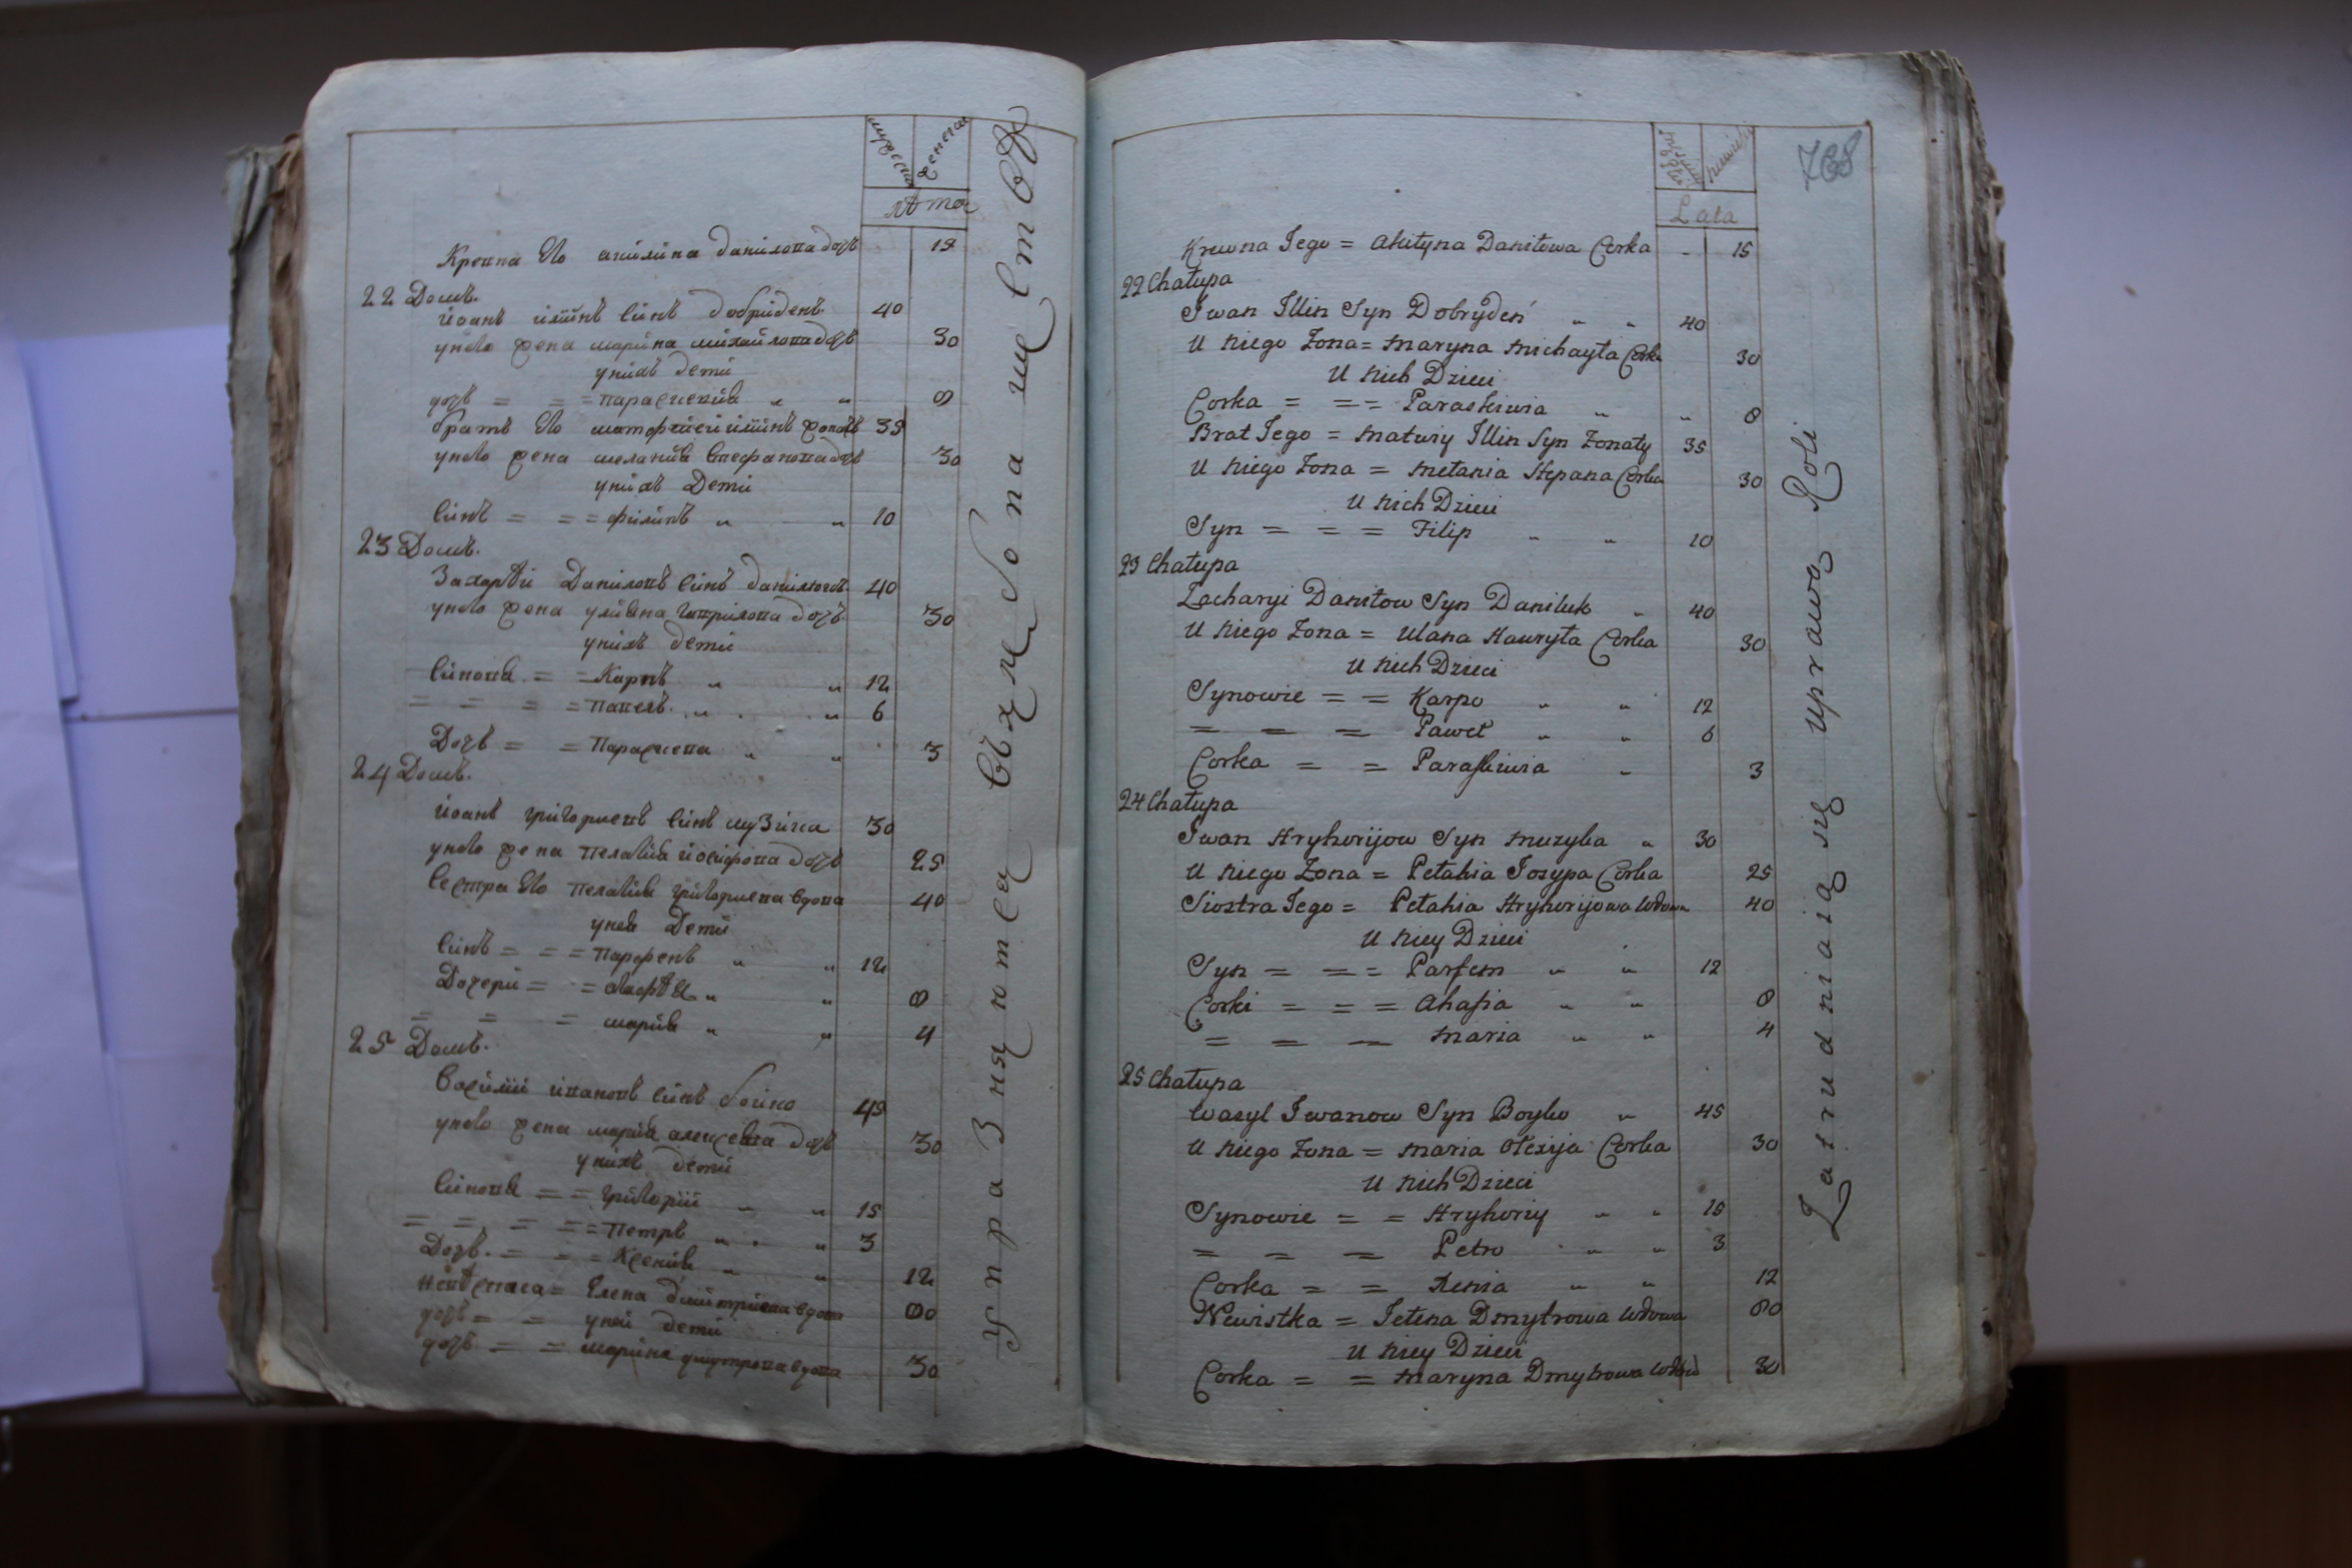 мужеска женска
лѣта
Кревна его акилина данилова дочь 15
22 Домъ.
йоанъ илїинъ синъ добриденъ. 40
унего жена марина михайлова дочь 30
унихъ дети
дочь = = = параскевия „ „ 8
братъ его матфией илїинъ жонатъ 35
унего жена мелания стефанова дочь 30
унихъ Дети
синъ = = = филипъ „ „ 10
23 Домъ.
Захарѣй Даниловъ синъ данилюкъ. 40
унего жена улияна гаврилова дочь. 30
унихъ дети
синовя. = = Карпъ „ „ 12
= = = = павелъ. „ „ 6
Дочь = = Параскева „ „ 3
24 Домъ.
йоанъ григориевъ синъ музика 30
унего жена пелагия йосифова дочь 25
сестра его пелагия григориева вдова 40
унея Дети
синъ = = = парфенъ „ „ 12
Дочери = = агафѣя „ „ 8
= = = мария „ „ 4
25 Домъ.
василий ивановъ синъ бойко 45
унего жена мария алексеева дочь 30
унихъ дети
синовя = = григорий „ „ 15
= = = = = петръ „ „ 3
Дочь. = = = Ксения „ „ 12
невѣстка = Елена димитриева вдова 80
дочь = = уней дети
дочь = = марина дмитрова вдова 30
Упражняются въ хлебопашествѣ
768
Lata
Krewna Jego = Akilyna Daniłowa Corka „ 15
22 Chałupa
Iwan Illin Syn Dobrydeń „ „ 40
U niego Zona = Maryna Michayła Corka 30
U nich Dzieci
Corka = = = Paraskiwia „ „ 8
Brat Jego = Matwiy Illin Syn Zonaty 35
U niego Zona = Mełania Stepana Corka 30
U nich Dzieci
Syn = = = Filip „ „ 10
23 Chałupa
Zacharyi Daniłow Syn Daniluk „ 40
U niego Zona = Ulana Hawryła Corka 30
U nich Dzieci
Synowie = = Karpo „ „ 12
= = = Paweł „ „ 6
Corka = = Paraskiwia „ 3
24 Chałupa
Iwan Hryhorijow Syn Muzyka „ 30
U niego Zona = Pełahia Josypa Corka 25
Siostra Jego = Pełahia Hryhorijowa Wdowa 40
U niey Dzieci
Syn = = = Parfem „ „ 12
Corki = = = Ahafia „ „ 8
= = = Maria „ „ 4
25 Chałupa
Wasyl Iwanow Syn Boyko „ 45
U niego Zona = Maria Ołexija Corka 30
U nich Dzieci
Synowie = = Hryhoriy „ „ 15
= = = Petro „ „ 3
Corka = = Xenia „ „ 12
Newistka = Jełena Dmytrowa Wdowa 80
U niey Dzieci
Corka = = Maryna Dmytrowa Wdowa 30
Zatrudniaią się uprawą Roli